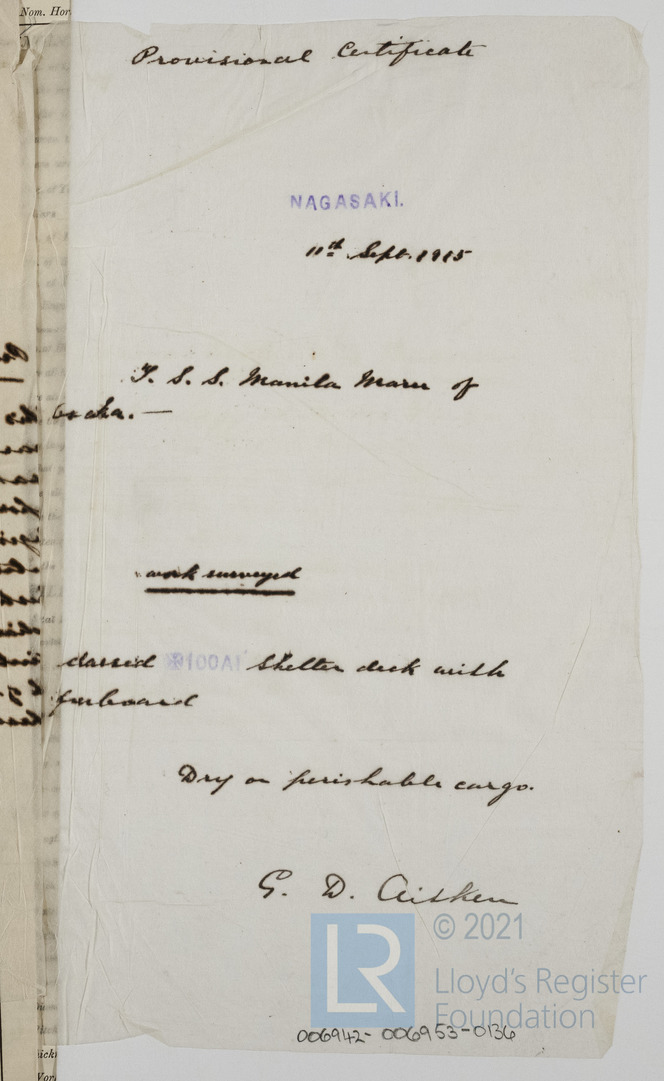 Nom. Hor
Provisional Certificate
NAGASAKI.
11th Sept. 1915
T. S. S. Manila Maru of
Osaka. —
work surveyed
classed ✠100A1 shelter deck with
freeboard
Dry or perishable cargo.
G. D. Aitken
LR
© 2021
Lloyd's Register
Foundation
006942-006953-0136